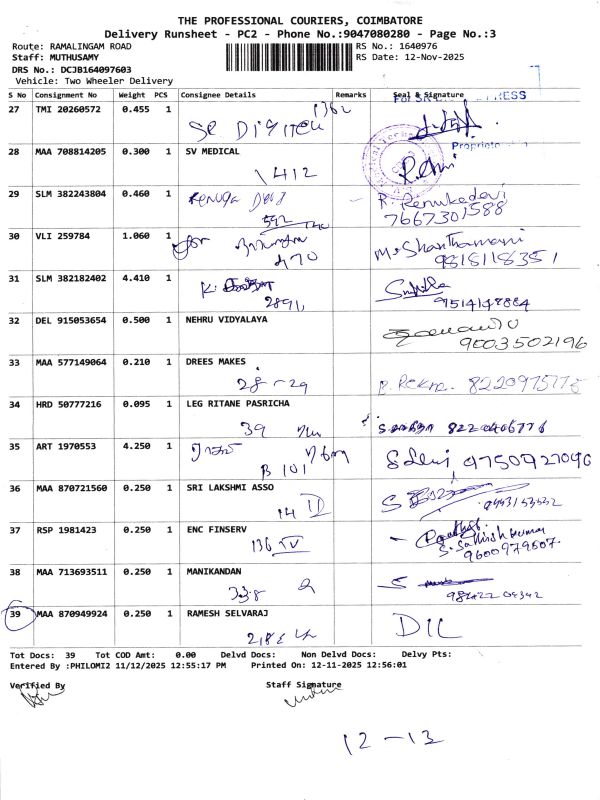 THE PROFESSIONAL COURIERS, COIMBATORE
Delivery Runsheet - PC2 - Phone No.:9047080280 - Page No.:3
Route: RAMALINGAM ROAD
RS No.: 1640976
Staff: MUTHUSAMY
RS Date: 12-Nov-2025
DRS No.: DCJB164097603
Vehicle: Two Wheeler Delivery
S No Consignment No Weight PCS Consignee Details Remarks Seal & Signature
27 TMI 20260572 0.455 1
1362
28 MAA 708814205 0.300 1 SV MEDICAL
1412
29 SLM 382243804 0.460 1 Renuga Devi R. Renukadevi
592 7667301588
30 VLI 259784 1.060 1 M. Shanthamani
470 9818118351
31 SLM 382182402 4.410 1 K.
2891, 9514147884
32 DEL 915053654 0.500 1 NEHRU VIDYALAYA
9003502196
33 MAA 577149064 0.210 1 DREES MAKES
28-29 P. Rekha.
34 HRD 50777216 0.095 1 LEG RITANE PASRICHA
39 8220406776
35 ART 1970553 4.250 1
B 101 S Devi 9750927096
36 MAA 870721560 0.250 1 SRI LAKSHMI ASSO
14 D
37 RSP 1981423 0.250 1 ENC FINSERV
136 IV S. Sathish kumar
9600979607.
38 MAA 713693511 0.250 1 MANIKANDAN
338
39 MAA 870949924 0.250 1 RAMESH SELVARAJ
D/L
Tot Docs: 39 Tot COD Amt: 0.00 Delvd Docs: Non Delvd Docs: Delvy Pts:
Entered By :PHILOMI2 11/12/2025 12:55:17 PM Printed On: 12-11-2025 12:56:01
Verified By Staff Signature
12 - 13